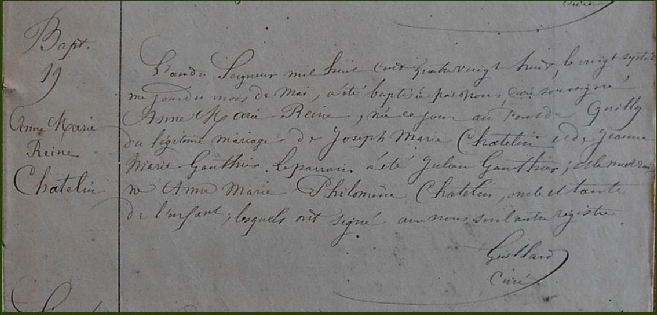 Curé
Bapt.
19
Anne Marie
Reine
Chatelin
L'an du Seigneur mil huit cent quatre vingt trois, le vingt septiè
me jour du mois de Mai, a été baptisée par nous, curé soussigné
Anne Marie Reine, née ce jour au Quilly
du légitime mariage de Joseph Marie Chatelin et de Jeanne
Marie Gauthier. Le parrain a été Julien Gauthier; et la marrai
ne Anne Marie Philomène Chatelin, oncle et tante
de l'enfant; lesquels ont signé avec nous sur l'autre registre
Curé